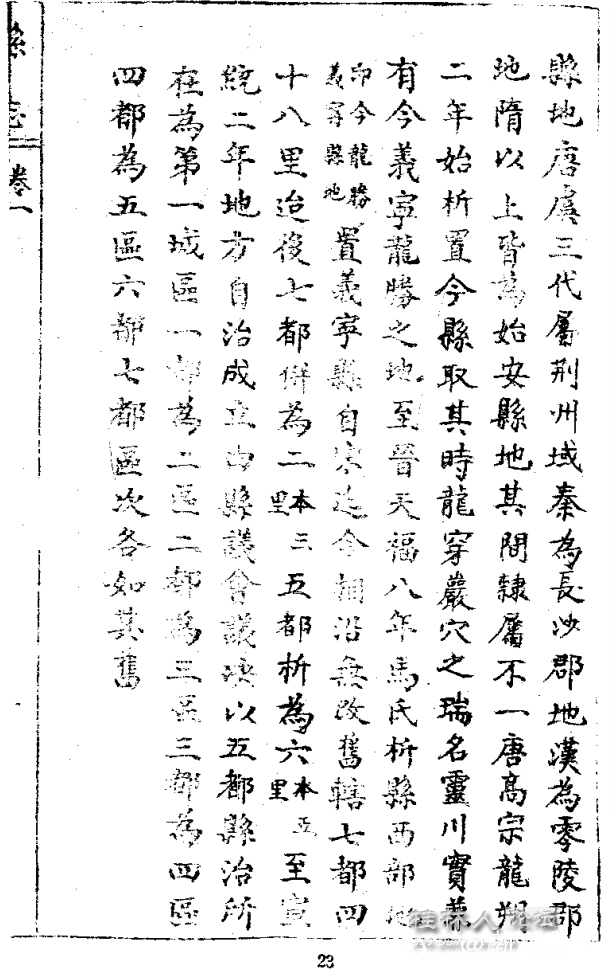 縣地唐虞三代屬荆州域秦為長沙郡地漢為零陵郡
地隋以上皆為始安縣地其間隸屬不一唐高宗龍朔
二年始析置今縣取其時龍穿巖穴之瑞名靈川實兼
有今義寧龍勝之地至晉天福八年馬氏析縣西部地
即今龍勝義寧縣地置義寧縣自宋迄今相沿無改舊轄七都四
十八里迨後七都併為二本三里五都析為六本五里至宣
統二年地方自治成立由縣議會議決以五都縣治所
在為第一城區一都為二區二都為三區三都為四區
四都為五區六都七都區次各如其舊
卷一
23
桂林人论坛